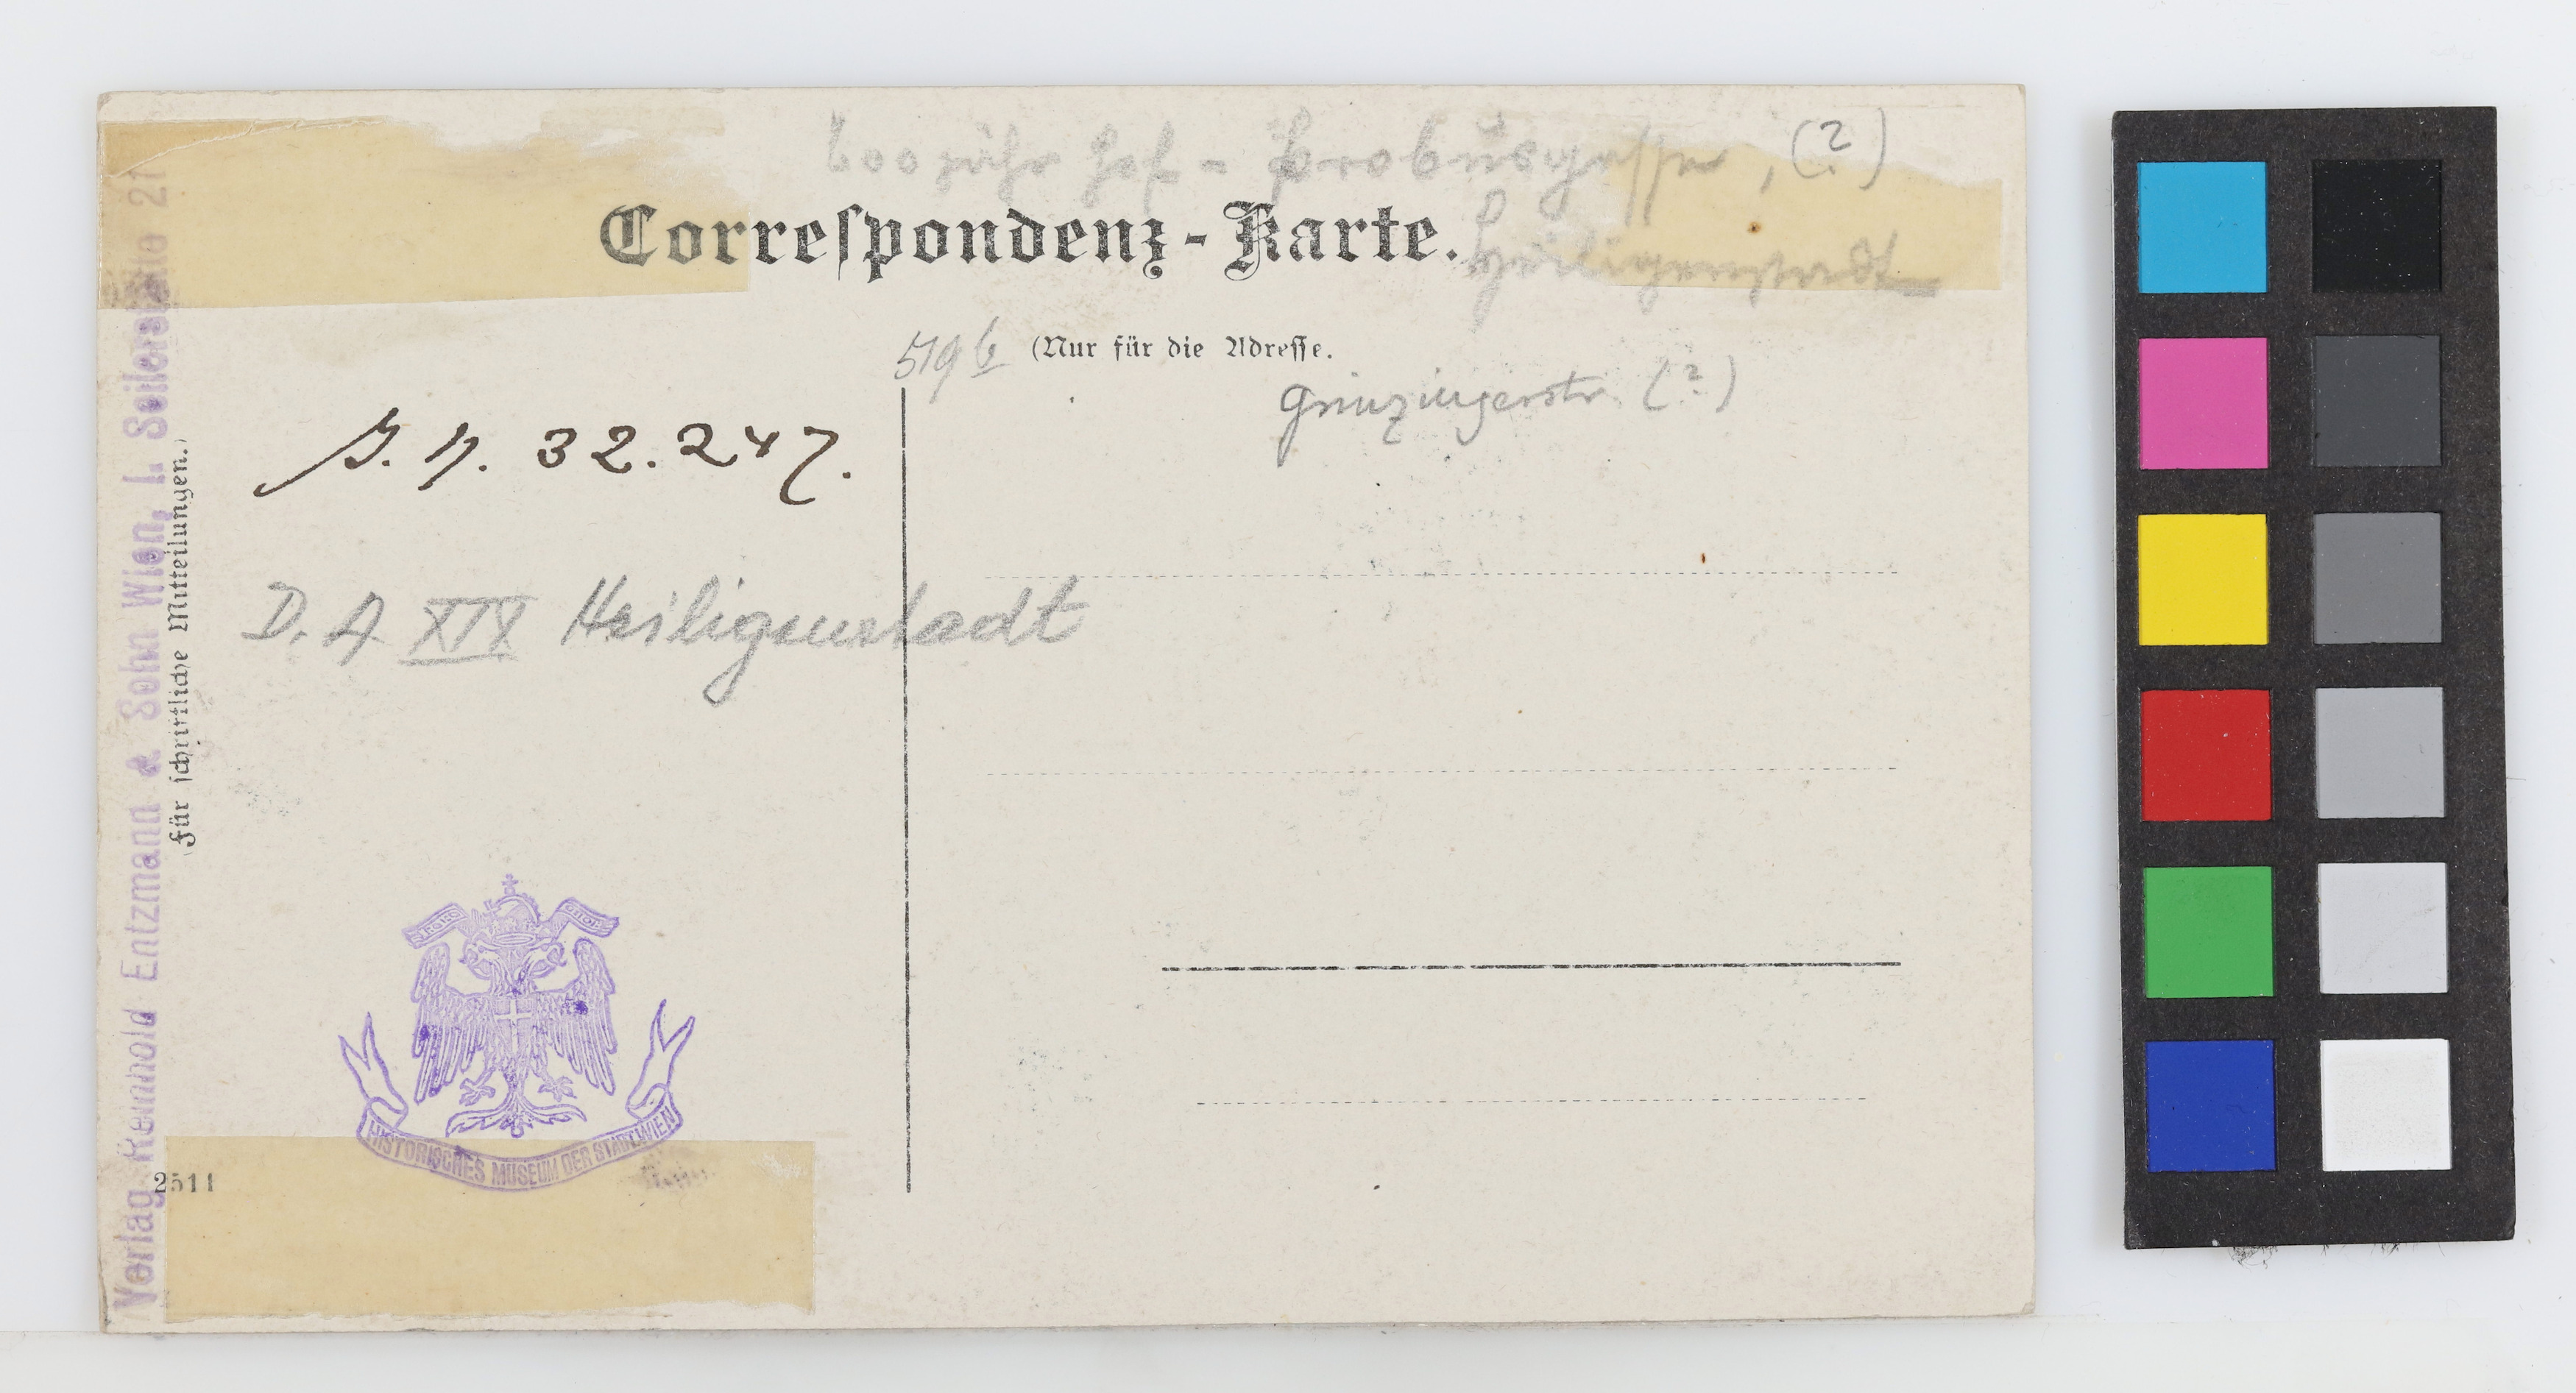 Hof - Probusgasse, (?)
Correſpondenz-Karte.
Heiligenstadt
519 b
(Nur für die Adreſſe.
Grinzingerstr. (?)
J. N. 32.247.
D. A XIX Heiligenstadt
Verlag Reinhold Entzmann & Sohn Wien, I. Seilerstätte 21
Für ſchriftliche Mitteilungen.)
HISTORISCHES MUSEUM DER STADT WIEN
2511